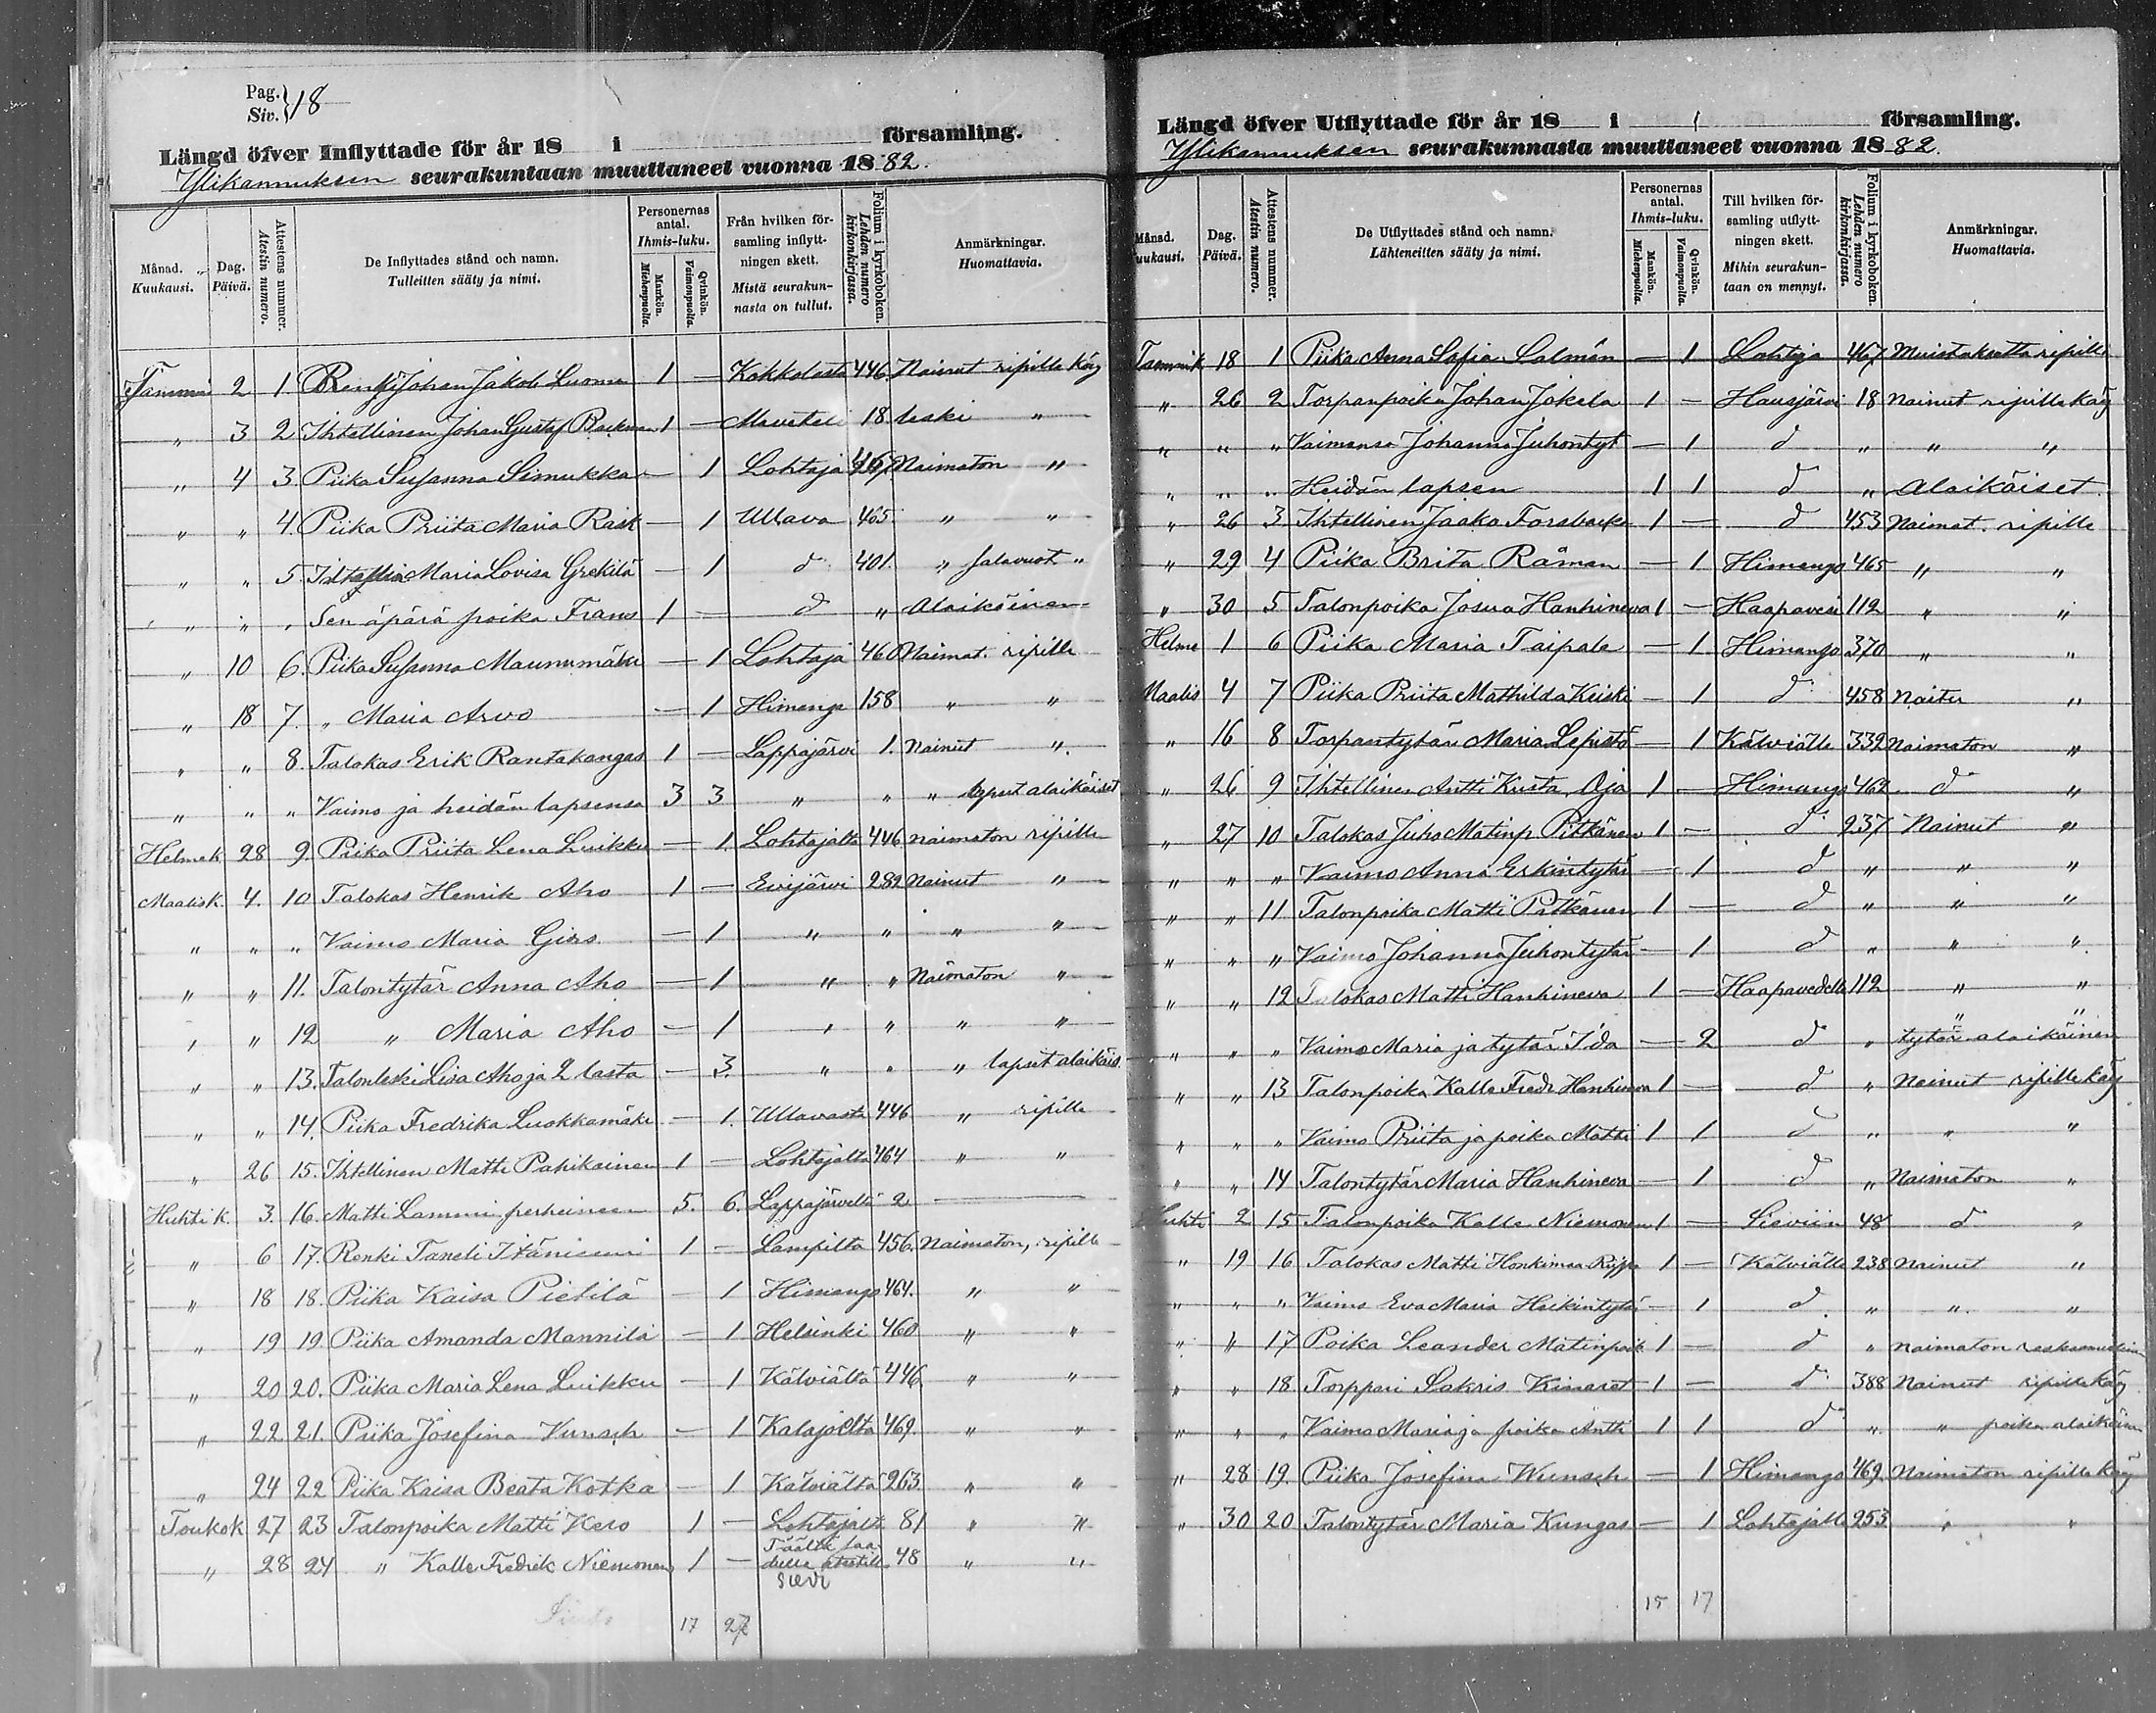 Pag. } 18
Siv.
Längd öfver Inflyttade för år 18 i församling.
Ylikannuksen seurakuntaan muuttaneet vuonna 1882.
Månad. Kuukausi. Dag. Päivä. Attestens nummer. Atestin numero. De Inflyttades stånd och namn. Tulleitten sääty ja nimi. Personernas antal. Ihmis-luku. Mankön. Miehenpuolta. Qvinkön. Vaimonpuolta. Från hvilken församling inflyttningen skett. Mistä seurakunnasta on tullut. Folium i kyrkoboken. Lehden numero kirkonkirjassa. Anmärkningar. Huomattavia.
Tammi 2 1. Renki Johan Jakob Luoma 1 — Kokkolasta 446 Nainut ripillä käy
" 3 2 Ihtellinen Johan Gustaf Backman 1 — Maveteli 18 leski "
" 4 3. Piika Susanna Simukka — 1 Lohtaja 467 Naimaton "
" " 4. Piika Priita Maria Rask — 1 Ullava 465 " "
" " 5 Maria Lovisa Grekilä — 1 d 401 " Salavuot "
" " " Sen äpärä poika Frans 1 — d " Alaikäinen
" 10 6. Piika Susanna Maunumäki — 1 Lohtaja 460 Naimat. ripille
" 18 7. " Maria Arvo — 1 Himango 158 " "
" " 8. Talokas Erik Rantakangas 1 — Lappajärvi 1. Nainut "
" " " Vaimo ja heidän lapsensa 3 3 " " " lapset alaikäiset
Helmek 28 9. Piika Priita Lena Luikku — 1. Lohtajalta 446 naimaton ripille
Maalisk. 4. 10 Talokas Henrik Aho 1 — Evijärvi 282 Nainut "
" " " Vaimo Maria Giers — 1 " " " "
" " 11. Talontytär Anna Aho — 1 " " Naimaton "
" " 12 " Maria Aho — 1 " " " "
" " 13. Talonleski Lisa Aho ja 2 lasta — 3. " " " lapset alaikäis.
" " 14. Piika Fredrika Luokkamäki — 1. Ullavasta 446 " ripille
" 26 15. Ihtellinen Matti Pahikainen 1 — Lohtajalta 464 " "
Huhtik. 3. 16. Matti Lammi perheineen 5. 6. Lappajärveltä 2 —
" 6 17. Renki Taneli Itäniemi 1 — Lampilta 456. Naimaton, ripille
" 18 18. Piika Kaisa Pietilä — 1 Himango 464. " "
" 19 19. Piika Amanda Mannila — 1 Helsinki 460 " "
" 20 20. Piika Maria Lena Luikku — 1 Kälviältä 446 " "
" 22 21. Piika Josefina Vunsch — 1 Kalajoelta 469. " "
" 24 22 Piika Kaisa Beata Kotka — 1 Kälviältä 263 " "
Toukok 27 23 Talonpoika Matti Kero 1 — Lohtajalta 81 " "
" 28 24 " Kalle Fredrik Niemonen 1 — Täältä saadulla atestilla 48 " "
Sievi
17 27
Längd öfver Utflyttade för år 18 i församling.
Ylikannuksen seurakunnasta muuttaneet vuonna 1882.
Månad. Kuukausi. Dag. Päivä. Attestens nummer. Atestin numero. De Utflyttades stånd och namn. Lähteneitten sääty ja nimi. Personernas antal. Ihmis-luku. Mankön. Miehenpuolta. Qvinkön. Vaimonpuolta. Till hvilken församling utflyttningen skett. Mihin seurakuntaan on mennyt. Folium i kyrkoboken. Lehden numero kirkonkirjassa. Anmärkningar. Huomattavia.
Tammik 18 1 Piika Anna Sofia Salmén — 1 Lohtaja 467 ripille
" 26 2 Torpanpoika Johan Jokela 1 — Hausjärvi 18 Nainut ripillä käy
" " " Vaimonsa Johanna Juhontyt — 1 d " " "
" " " Heidän lapsen 1 1 d " Alaikäiset
" 26 3 Ihtellinen Jaako Forsbacka 1 — d 453 Naimat. ripille
" 29 4 Piika Brita Råman — 1 Himango 465 " "
" 30 5 Talonpoika Josua Hanhineva 1 — Haapavesi 112 " "
Helme 1 6 Piika Maria Taipale — 1 Himango 370 " "
Maalis 4 7 Piika Priita Mathilda Keiski — 1 d 458 Naitu "
" 16 8 Torpantytär Maria Lepistö — 1 Kälviälle 332 Naimaton "
" 26 9 Ihtellinen Antti Kusta Oja 1 — Himango 462 d "
" 27 10 Talokas Juho Matinp Pitkänen 1 — d 237 Nainut "
" " " Vaimo Anna Erkintytär — 1 d " " "
" " 11 Talonpoika Matti Pitkänen 1 — d " " "
" " " Vaimo Johanna Juhontytär — 1 d " " "
" " 12 Talokas Matti Hanhineva 1 — Haapavedelle 112 " "
" " " Vaimo Maria ja tytär Ida — 2 d " tytär alaikäinen
" " 13 Talonpoika Kalle Fredr Hanhineva 1 — d " Nainut ripillä käy
" " " Vaimo Priita ja poika Matti 1 1 d " " "
" " 14 Talontytär Maria Hanhineva — 1 d " Naimaton "
Huhti 2 15 Talonpoika Kalle Niemonen 1 — Sieviin 48 d "
" 19 16 Talokas Matti Honkimaa Riippa 1 — Kälviälle 238 Nainut "
" " " Vaimo Eva Maria Heikintytär — 1 d " " "
" " 17 Poika Leander Matinpoik 1 — d " Naimaton
" " 18 Torppari Sakris Kinaret 1 — d 388 Nainut ripillä käy
" " " Vaimo Maria ja poika Antti 1 1 d " " poika alaikäinen
" 28 19. Piika Josefina Wunsch — 1 Himango 469 Naimaton ripillä käy
" 30 20 Talontytär Maria Kungas — 1 Lohtajalle 253 " "
15 17